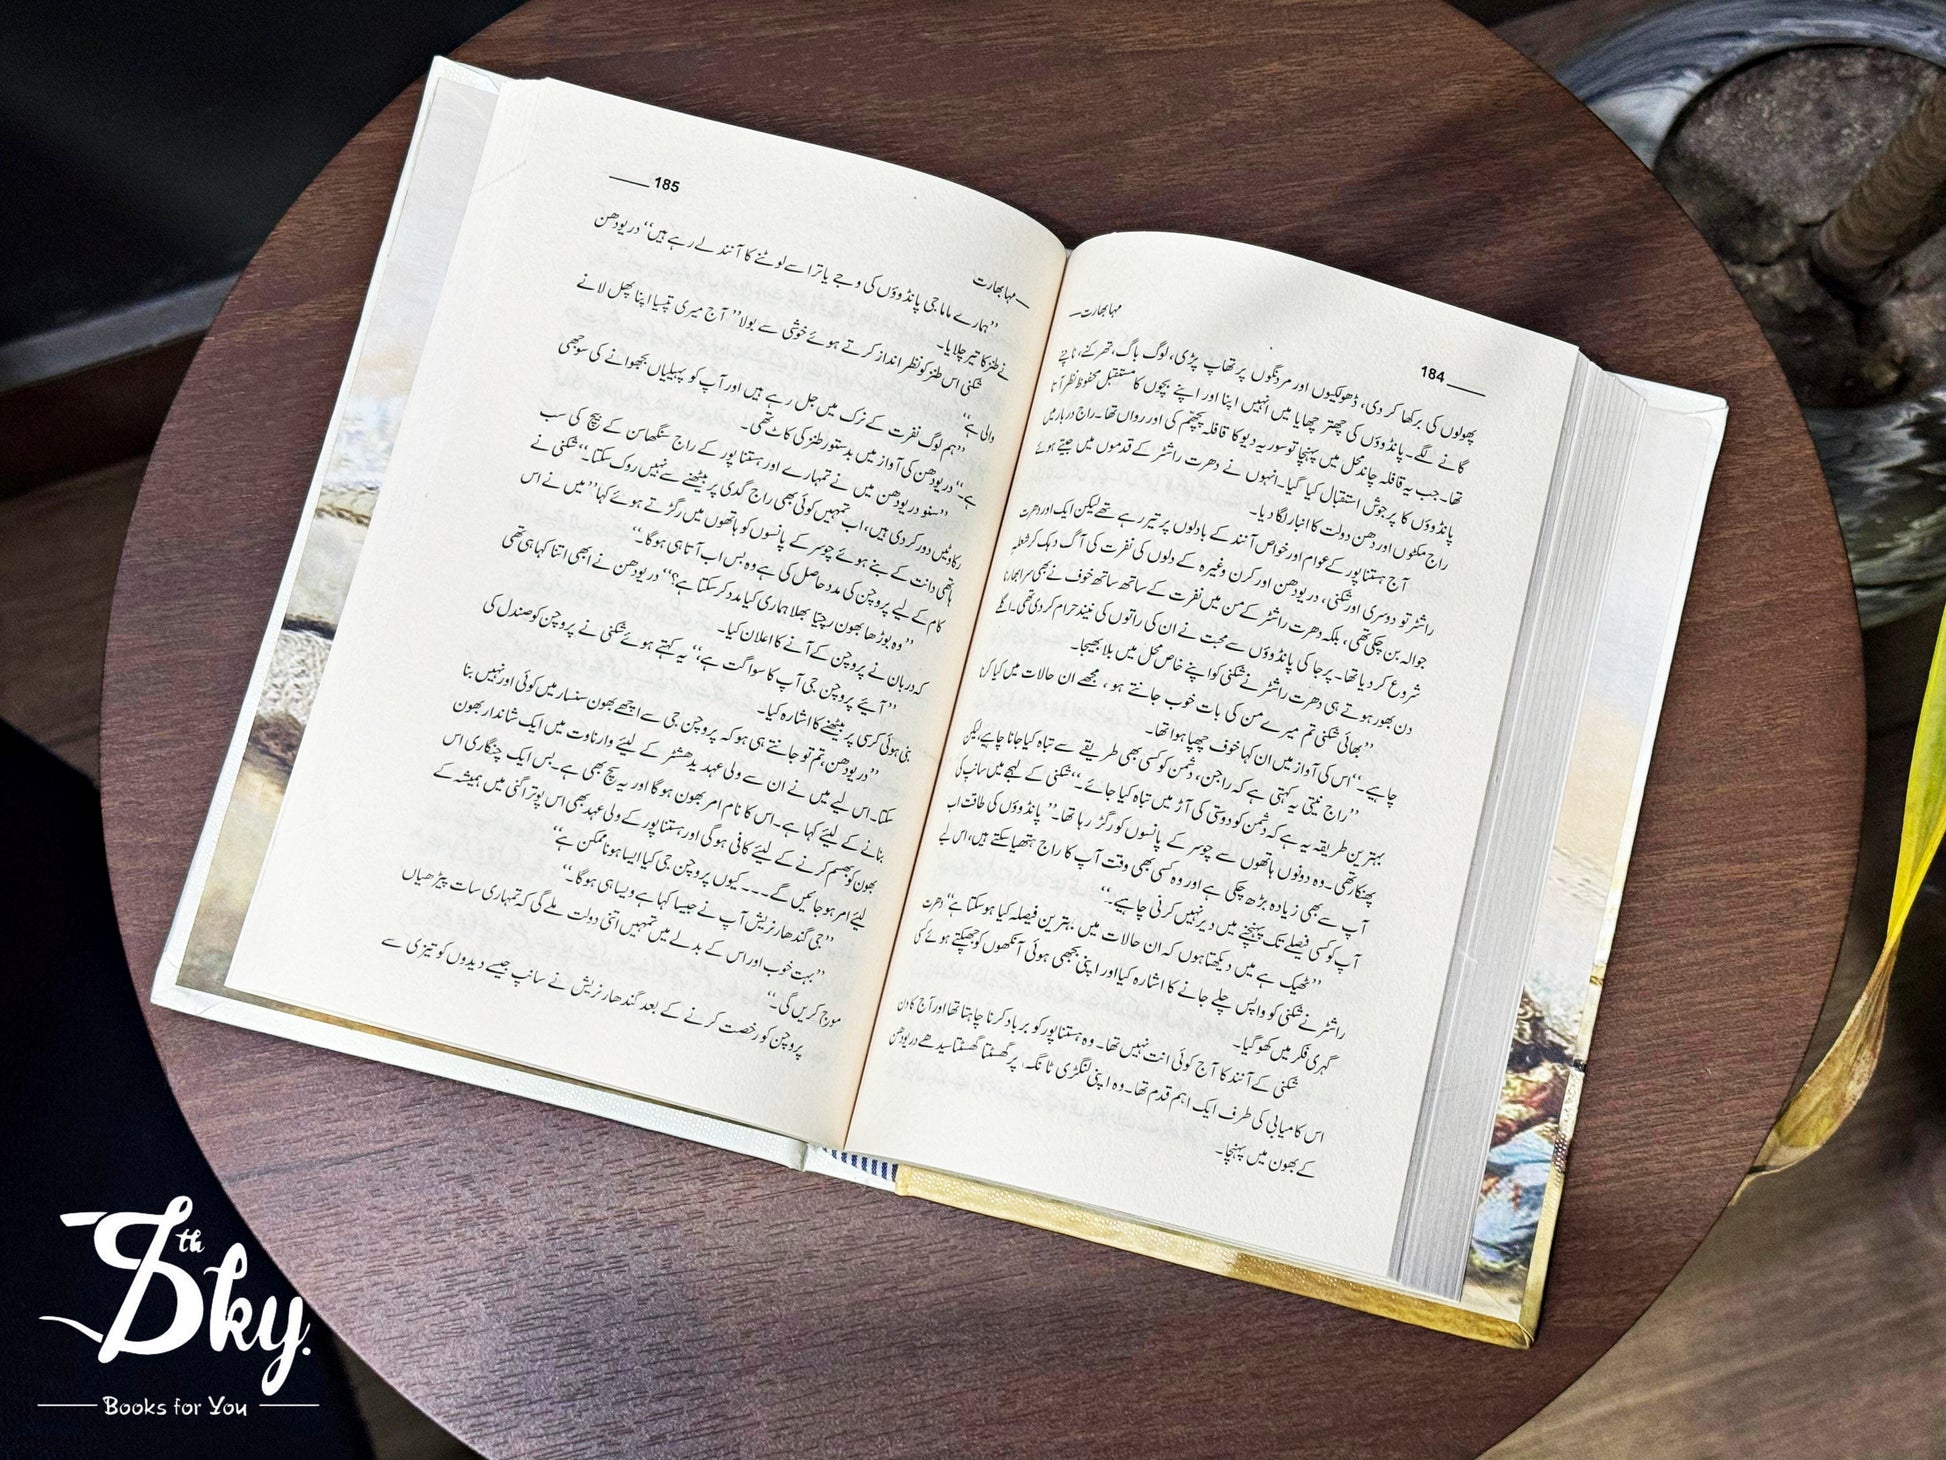 184
مہابھارت
پھولوں کی برکھا کر دی، ڈھولکیوں اور مردنگوں پر تھاپ پڑی، لوگ باگ، تھرکنے، ناچنے
گانے لگے۔ پانڈوؤں کی چھتر چھایا میں انہیں اپنا اور اپنے بچوں کا مستقبل محفوظ نظر آتا
تھا۔ جب یہ قافلہ چاند محل میں پہنچا تو سوریہ دیو کا قافلہ پچھم کی اور رواں تھا۔ راج دربار میں
پانڈوؤں کا پرجوش استقبال کیا گیا۔ انہوں نے دھرت راشٹر کے قدموں میں جیتے ہوئے
راج مکٹوں اور دھن دولت کا انبار لگا دیا۔
آج ہستنا پور کے عوام اور خواص آنند کے بادلوں پر تیر رہے تھے لیکن ایک اور دھرت
راشٹر تو دوسری اور شکنی، دریودھن اور کرن وغیرہ کے دلوں کی نفرت کی آگ دہک کر شعلہ
جوالہ بن چکی تھی، بلکہ دھرت راشٹر کے من میں نفرت کے ساتھ ساتھ خوف نے بھی سر ابھارنا
شروع کر دیا تھا۔ پرجا کی پانڈوؤں سے محبت نے ان کی راتوں کی نیند حرام کر دی تھی۔ اگلے
دن بھور ہوتے ہی دھرت راشٹر نے شکنی کو اپنے خاص محل میں بلا بھیجا۔
”بھائی شکنی تم میرے من کی بات خوب جانتے ہو، مجھے ان حالات میں کیا کرنا
چاہیے۔“ اس کی آواز میں ان کہا خوف چھپا ہوا تھا۔
”راج نیتی یہ کہتی ہے کہ راجن، دشمن کو کسی بھی طریقے سے تباہ کیا جانا چاہیے، لیکن
بہترین طریقہ یہ ہے کہ دشمن کو دوستی کی آڑ میں تباہ کیا جائے۔“ شکنی کے لہجے میں سانپ کی
پھنکار تھی۔ وہ دونوں ہاتھوں سے چوسر کے پانسوں کو رگڑ رہا تھا۔” پانڈوؤں کی طاقت اب
آپ سے بھی زیادہ بڑھ چکی ہے اور وہ کسی بھی وقت آپ کا راج ہتھیا سکتے ہیں، اس لیے
آپ کو کسی فیصلے تک پہنچنے میں دیر نہیں کرنی چاہیے۔“
”ٹھیک ہے میں دیکھتا ہوں کہ ان حالات میں بہترین فیصلہ کیا ہو سکتا ہے“ دھرت
راشٹر نے شکنی کو واپس چلے جانے کا اشارہ کیا اور اپنی بجھی ہوئی آنکھوں کو جھپکتے ہوئے کسی
گہری فکر میں کھو گیا۔
شکنی کے آنند کا آج کوئی انت نہیں تھا۔ وہ ہستنا پور کو برباد کرنا چاہتا تھا اور آج کا دن
اس کامیابی کی طرف ایک اہم قدم تھا۔ وہ اپنی لنگڑی ٹانگ پر گھسٹتا گھسٹتا سیدھے دریودھن
کے بھون میں پہنچا۔
185
مہابھارت
”ہمارے ماما جی پانڈوؤں کی وجے یاترا سے لوٹنے کا آنند لے رہے ہیں“ دریودھن
نے طنز کا تیر چلایا۔
شکنی اس طنز کو نظر انداز کرتے ہوئے خوشی سے بولا” آج میری تپسیا اپنا پھل لانے
والی ہے“
”ہم لوگ نفرت کے نرک میں جل رہے ہیں اور آپ کو پہیلیاں بجھوانے کی سوجھی
ہے۔“ دریودھن کی آواز میں بدستور طنز کی کاٹ تھی۔
”سنو دریودھن میں نے تمہارے اور ہستنا پور کے راج سنگھاسن کے بیچ کی سب
رکاوٹیں دور کر دی ہیں، اب تمہیں کوئی بھی راج گدی پر بیٹھنے سے نہیں روک سکتا۔“ شکنی نے
ہاتھی دانت کے بنے ہوئے چوسر کے پانسوں کو ہاتھوں میں رگڑتے ہوئے کہا” میں نے اس
کام کے لیے پروچن کی مدد حاصل کی ہے وہ بس اب آتا ہی ہوگا۔“
”وہ بوڑھا بھون رچیتا بھلا ہماری کیا مدد کر سکتا ہے؟“ دریودھن نے ابھی اتنا کہا ہی تھی
کہ دربان نے پروچن کے آنے کا اعلان کیا۔
”آیئے پروچن جی آپ کا سواگت ہے،“ یہ کہتے ہوئے شکنی نے پروچن کو صندل کی
بنی ہوئی کرسی پر بیٹھنے کا اشارہ کیا۔
”دریودھن، تم تو جانتے ہی ہو کہ پروچن جی سے اچھے بھون سنسار میں کوئی اور نہیں بنا
سکتا۔ اس لیے میں نے ان سے ولی عہد یدھشٹر کے لیئے وارناوت میں ایک شاندار بھون
بنانے کے لیئے کہا ہے۔ اس کا نام امر بھون ہوگا اور یہ سچ بھی ہے۔ بس ایک چنگاری اس
بھون کو بھسم کرنے کے لیئے کافی ہوگی اور ہستنا پور کے ولی عہد بھی اس پوتر اگنی میں ہمیشہ کے
لیئے امر ہو جائیں گے۔۔۔ کیوں پروچن جی کیا ایسا ہونا ممکن ہے“
”جی گندھار نریش آپ نے جیسا کہا ہے ویسا ہی ہوگا۔“
”بہت خوب اور اس کے بدلے میں تمہیں اتنی دولت ملے گی کہ تمہاری سات پیڑھیاں
موج کریں گی۔“
پروچن کو رخصت کرنے کے بعد گندھار نریش نے سانپ جیسے دیدوں کو تیزی سے
7th Sky.
Books for You